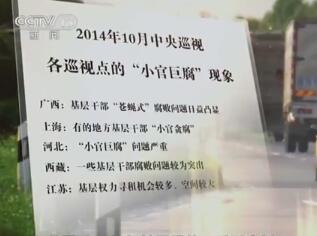 CCTV
新闻
2014年10月中央巡视
各巡视点的“小官巨腐”现象
广西：基层干部“苍蝇式”腐败问题日益凸显
上海：有的地方基层干部“小官贪腐”
河北：“小官巨腐”问题严重
西藏：一些基层干部腐败问题较为突出
江苏：基层权力寻租机会较多、空间较大